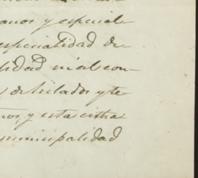 anos y especial
especialidad de
lidad mal con-
de hilados y te
nos y esta cifra
municipalidad